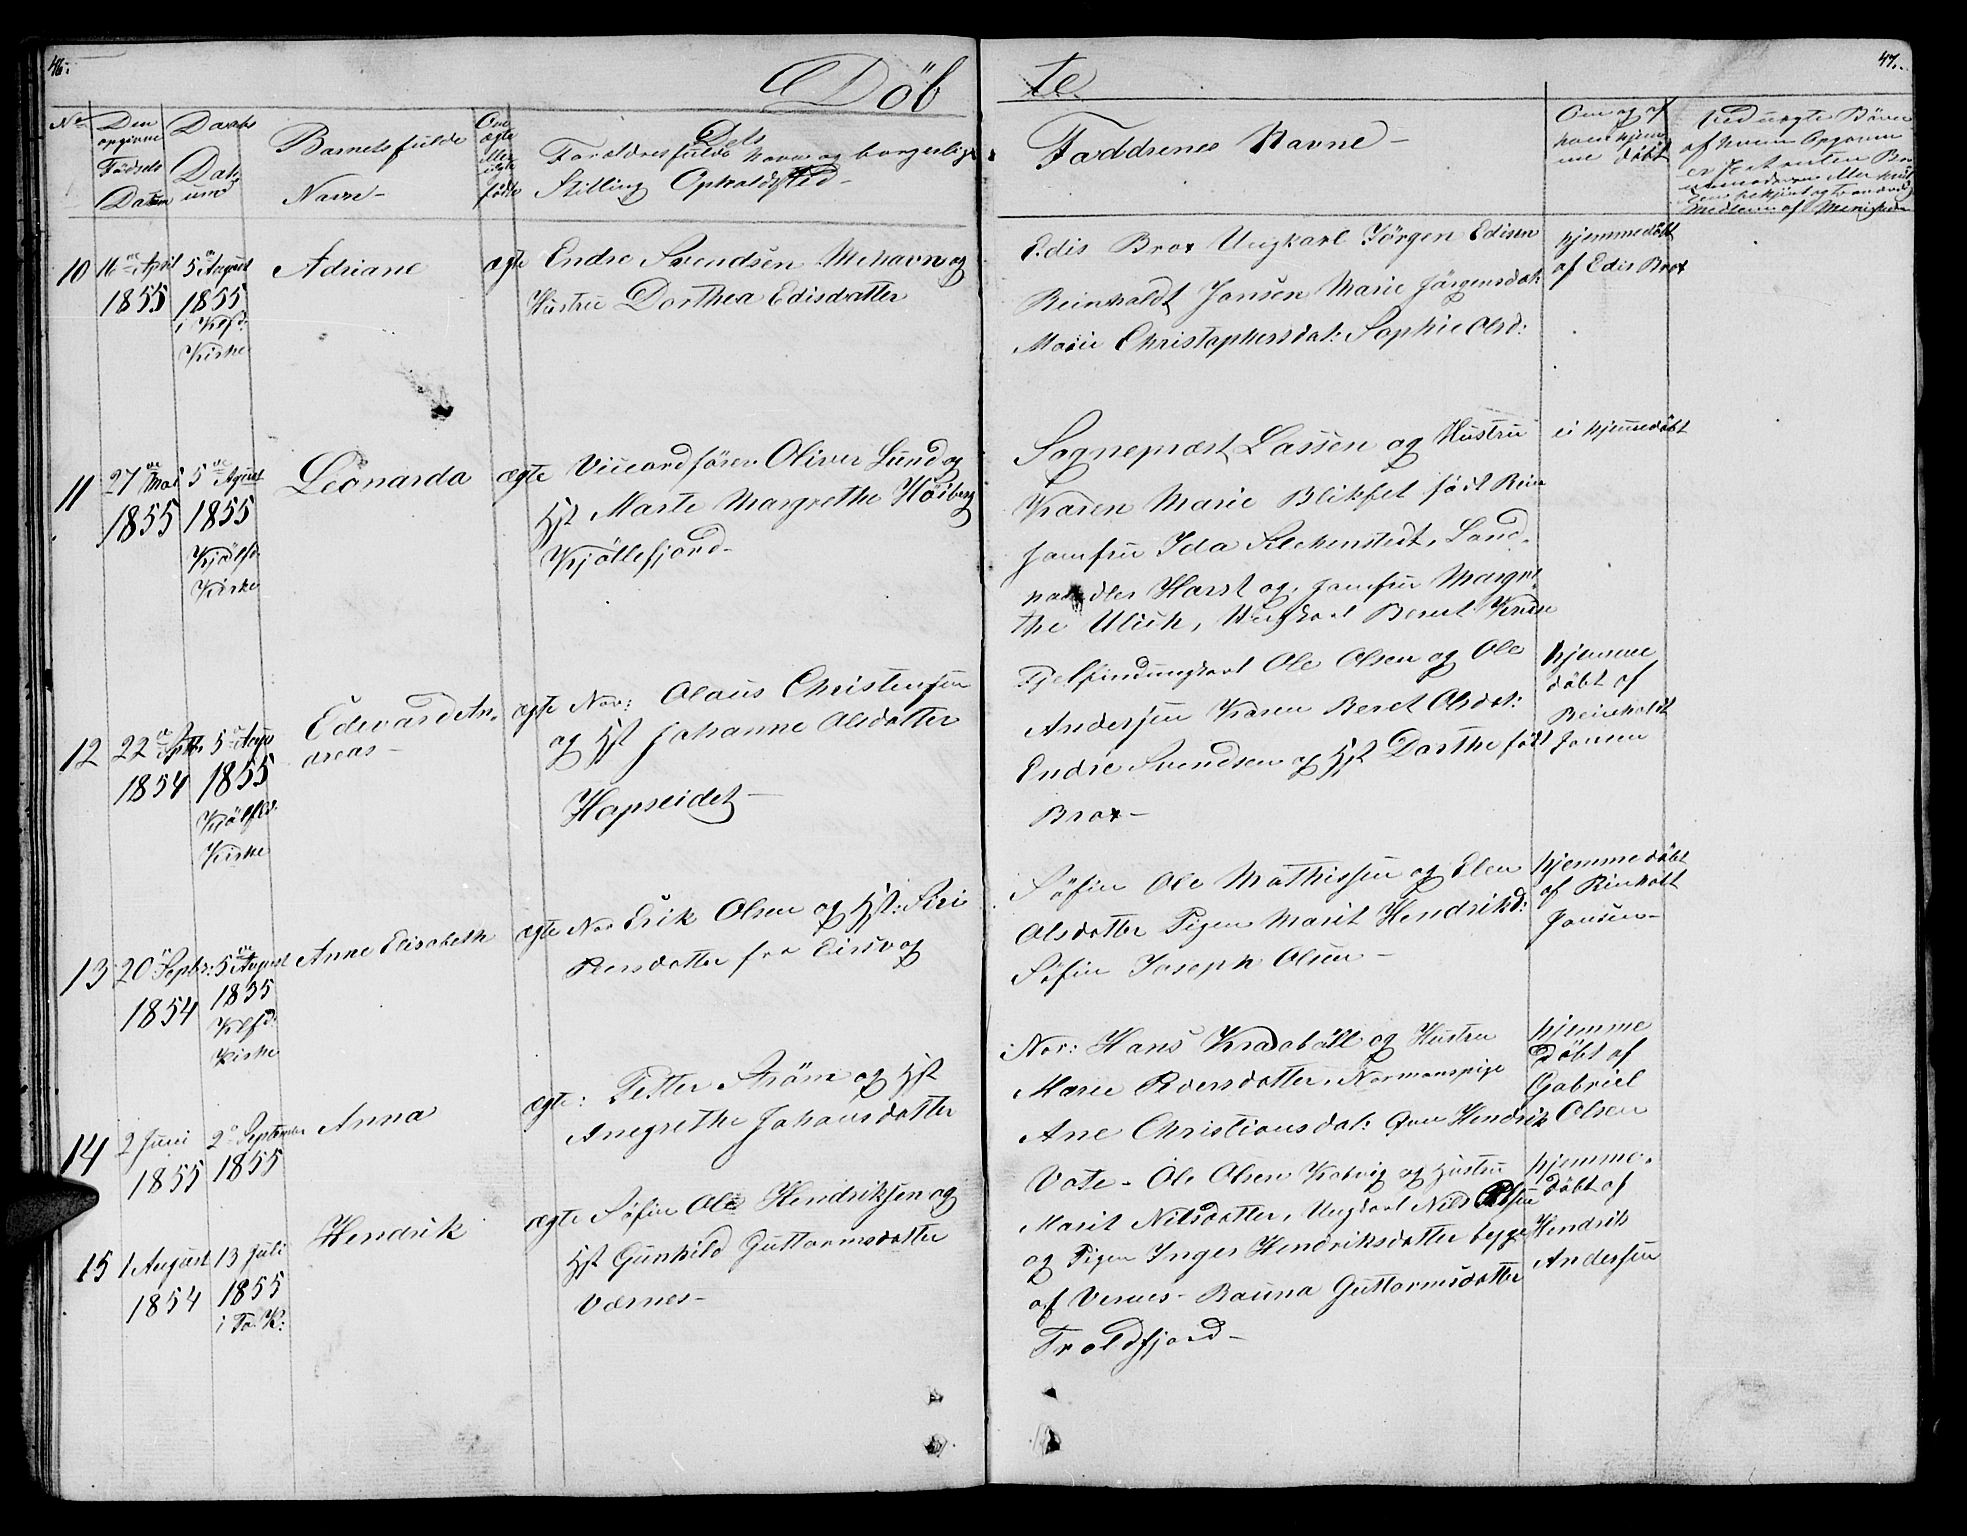 46.
47.
Döb te
No
Den opgivne Födsels Datum
Daabs Datum
Barnets fulde Navn-
Om ægte eller uægte födte
Dets Forældres fulde Navne og borgerlige Stilling Opholdssted-
Faddrenes Navne-
Om og af hvem hjemme döbt
Ved uægte Börn af hvem Opgivne
Medlem af Menigheden
10 16de April 1855
5te August 1855 i Klfd: Kirke
Adriane
ægte
Endre Svendsen Mehavn og
Hustru Dorthea Edisdatter
Edis Brox Ungkarl Jörgen Edisen
Reinholdt Jansen Marie Jörgensdatt
Marie Christophersdat: Sophie Olsd:
hjemmedöbt
af Edis Brox
11 27de Mai 1855
5te August 1855 Kjölfd. Kirke
Leonarda
ægte
Oliver Lund og
Hst Marte Margrethe Höiberg
Kjöllefjord-
Sognepræst Lassen og Hustru
Karen Marie Blikfel födt Rein
Jomfru Ida Seckenstedt, Land-
handler Horst og Jomfru Margre-
the Ulich, Ungkarl Bernt Krüse
ei hjemmedöbt
12 22de Septbr 1854
5te Augus 1855 Kjölfd. Kirke
Edevard An-
dreas-
ægte
Nor: Olaus Christensen
og Hst Johanne Olsdatter
Hopseidet-
Fjelfindungkarl Ole Olsen og Ole
Andersen Karen Beret Olsdat:
Endre Svendsen og Hst Dorthe födt
Brox-
hjemme
döbt af
Reinholdt
Jansen
13 20de Septbr: 1854
5te August 1855 Klfd. Kirke
Anne Elisabeth
ægte
Nor Erik Olsen og Hst: Siri
Persdatter fra Eirsvog
Söfin Ole Mathissen og Elen
Olsdatter Pigen Marit Hendriksd:
Söfin Joseph Olsen-
hjemmedöbt
af Reinholt
Jansen-
14 2 Juni 1855
2de September 1855
Anna
ægte:
Petter Ström og Hst
Anegrethe Johansdatter
Nor: Hans Kradaböll og Hustru
Marie Peersdatter, Normanspige
Ane Christiansdat: Hendrik Olsen
hjemme
döbt af
Gabriel
15 1 August 1854
13 Juli 1855 i Ta. K:
Hendrik
ægte
Söfin Ole Hendriksen og
Hst Gunhild Guttormsdatter
Værnes-
Ole Olsen og Hustru
Marit Nilsdatter, Ungkarl Nils
og Pigen Inger Hendriksdatter begge
af Vernes- Rauna Guttormsdatter
Troldfjord-
hjemme-
döbt af
Hendrik
Andersen